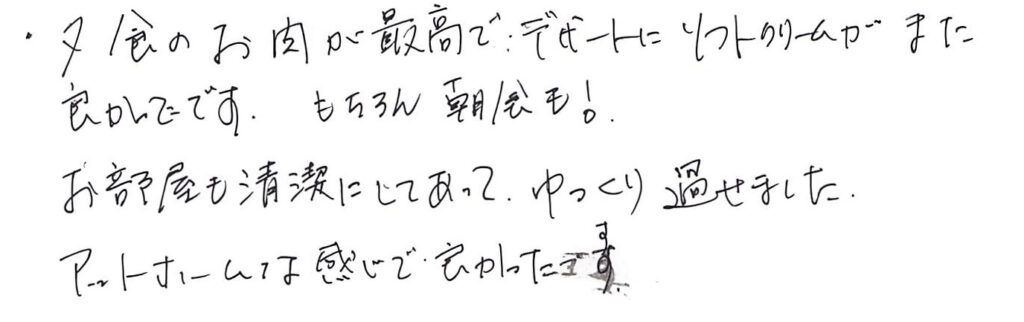 ・夕食のお肉が最高で、デザートにソフトクリームがまた
良かったです. もちろん朝食も!.
お部屋も清潔にしてあって、ゆっくり過せました.
アットホームな感じで、良かったです.